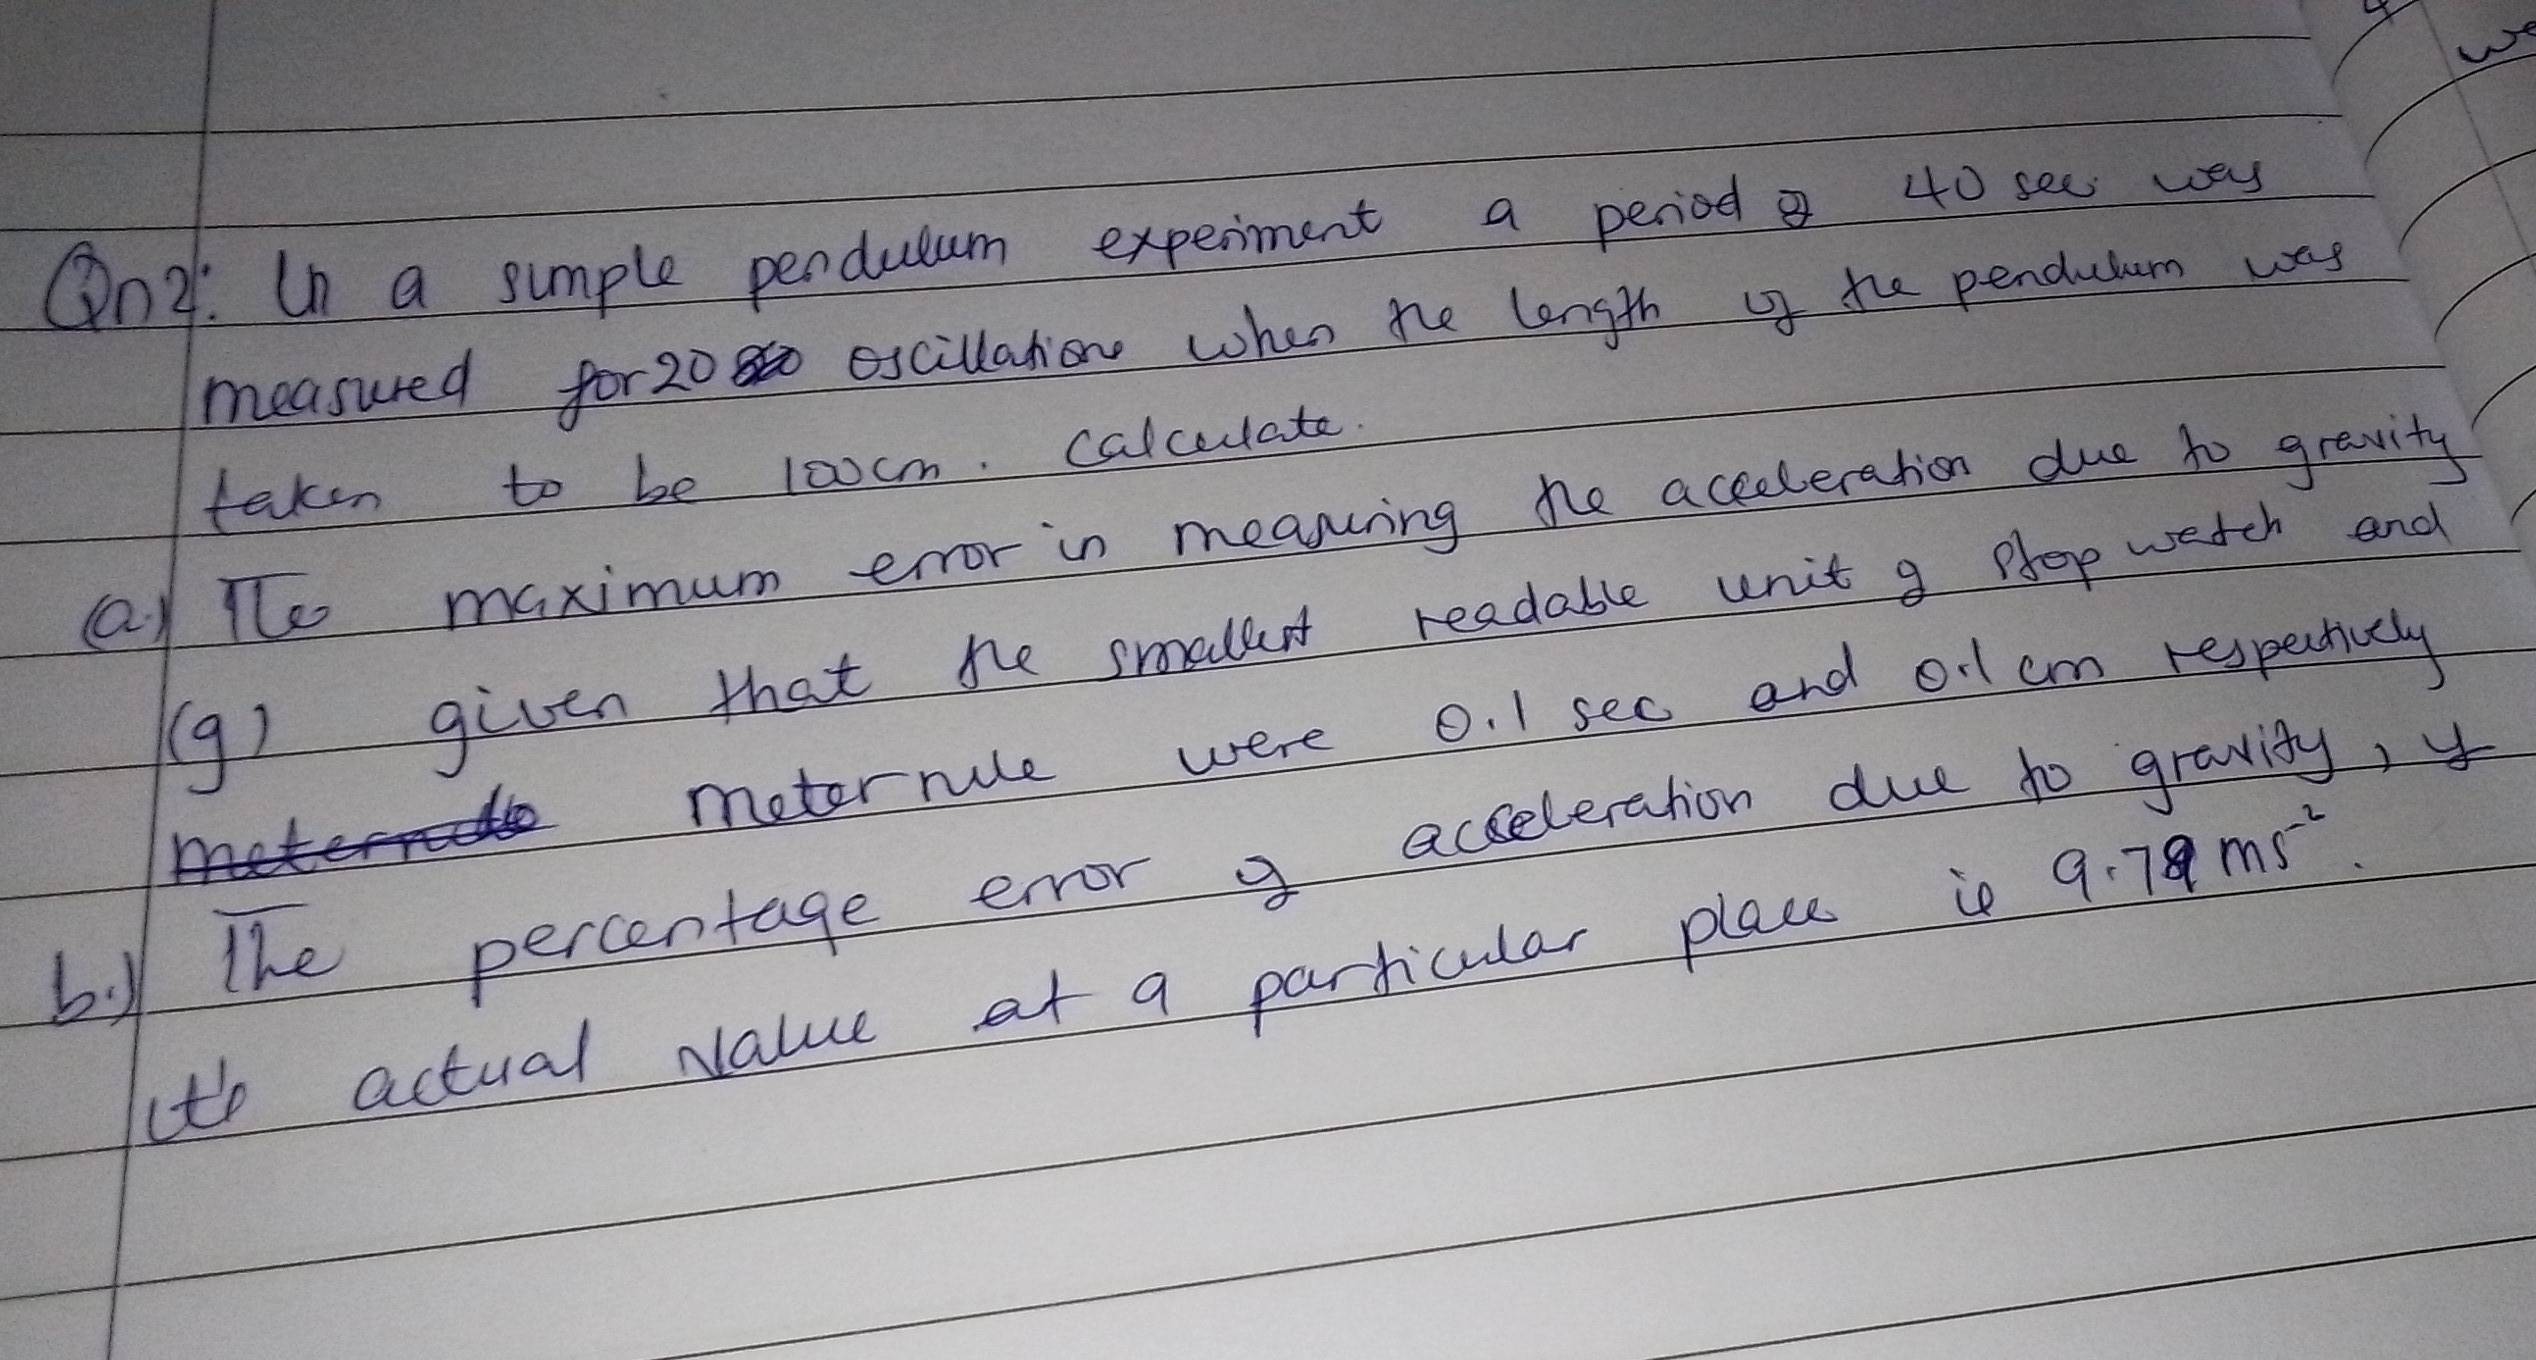 we
Qn2: In a simple pendulum experiment a period of 40 sec was
measured for 20 oscillations when the length of the pendulum was
taken to be 100cm. Calculate.
(a.) The maximum error in measuring the acceleration due to gravity
(g) given that the smallest readable unit of stop watch and
meter rule were 0.1 sec and 0.1 cm respectively
b.) The percentage error of acceleration due to gravity, if
its actual value at a particular place is 9.79 ms⁻².